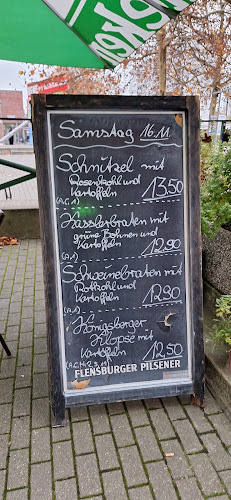 Samstag 16.11.
Schnitzel mit
Rosenkohl und
Kartoffeln 13.50
(A,G,1)
Kasslerbraten mit
grüne Bohnen und
Kartoffeln 12.90
(A,1)
Schweinebraten mit
Rotkohl und
Kartoffeln 12.90
(A,1)
Königsberger
Klopse mit
Kartoffeln 12.50
FLENSBURGER PILSENER